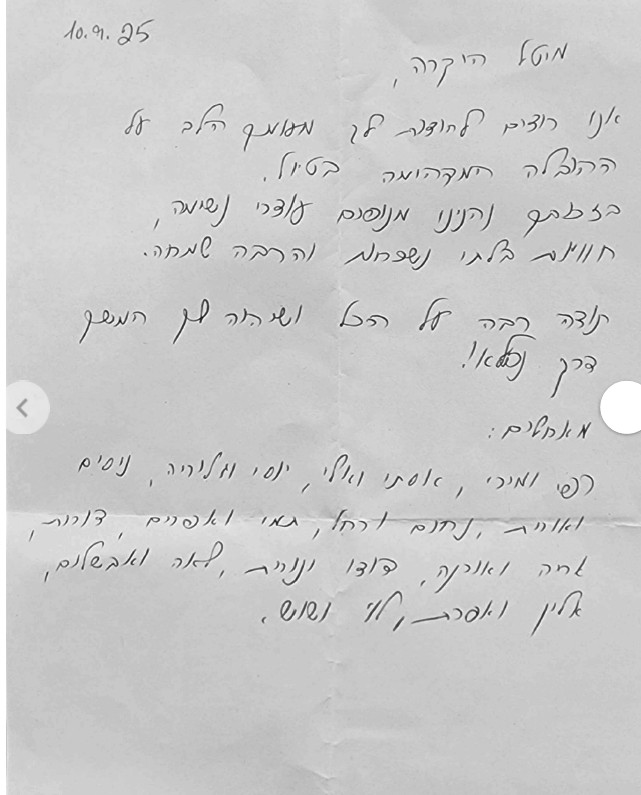 10.9.25
מיטל היקרה,
אנו רוצים להודות לך מעומק הלב על
ההובלה המדהימה בטיול.
בזכותך נהנינו מנופים עוצרי נשימה,
חוויות בלתי נשכחות והרבה שמחה.
תודה רבה על הכל ושיהיה לך המשך
דרך נפלאה!
מאחלים:
רפי ומירי, אסתי ואלי, יוסי וגלוריה, ניסים
ואורית, נחום ורחל, תמי ואפרים, דורות,
אריה ואורנה, דודו ונורית, לאה ואבשלום,
אלין ואפרת, לוי ושוש.